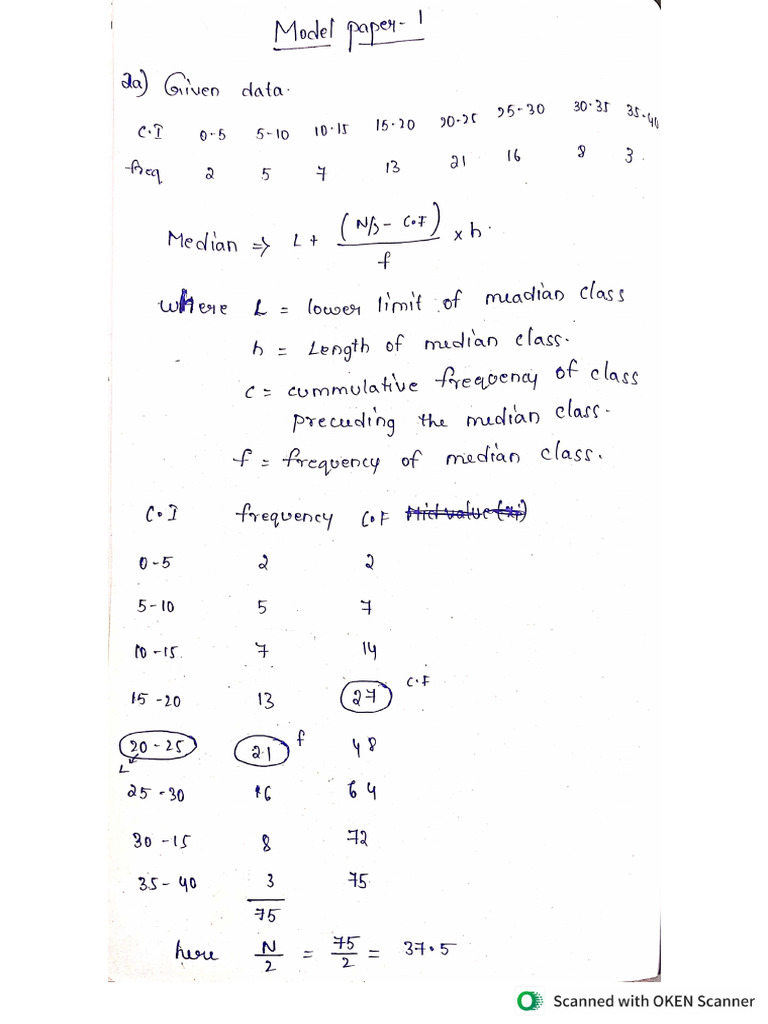 Model paper-1
2a) Given data.
C.I 0-5 5-10 10-15 15-20 20-25 25-30 30-35 35-40
freq 2 5 7 13 21 16 8 3
Median ⇒ L + (N/2 - C.F) / f × h.
where L = lower limit of meadian class
h = Length of median class.
c = cummulative frequency of class
preceding the median class.
f = frequency of median class.
C.I frequency C.F Mid value (xi)
0-5 2 2
5-10 5 7
10-15 7 14
15-20 13 27 C.F
20-25 21 f 48
L
25-30 16 64
30-15 8 72
35-40 3 75
75
here N/2 = 75/2 = 37.5
Scanned with OKEN Scanner